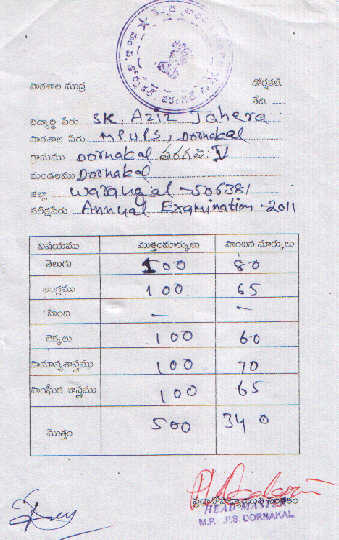 పాఠశాల ముద్ర
తేది.
విద్యార్థి పేరు SK. Aziz Jahera
పాఠశాల పేరు M.P.U.P.S, Dornakal
గ్రామము Dornakal తరగతి: V
మండలము Dornakal
జిల్లా Warangal - 506381
పరీక్షపేరు Annual Examination-2011
విషయము మొత్తంమార్కులు పొందిన మార్కులు
తెలుగు 100 80
ఆంగ్లము 100 65
హింది - -
లెక్కలు 100 60
సామాన్యశాస్త్రము 100 70
సాంఘీక శాస్త్రము 100 65
మొత్తం 500 340
HEAD MASTER
M.P. U.P.S DORNAKAL